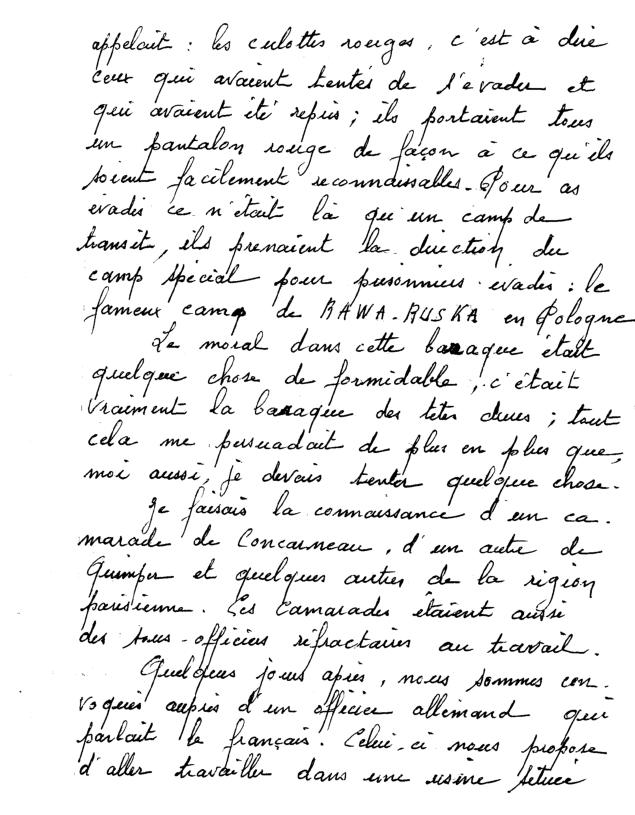 appelait : les culottes rouges, c'est à dire
ceux qui avaient tentés de s'évader et
qui avaient été repris ; ils portaient tous
un pantalon rouge de façon à ce qu'ils
soient facilement reconnaissables. Pour as
évadés ce n'était là qu'un camp de
transit, ils prenaient la direction du
camp spécial pour prisonniers évadés : le
fameux camp de RAWA-RUSKA en Pologne
Le moral dans cette baraque était
quelque chose de formidable, c'était
vraiment la baraque des têtes dures ; tout
cela me persuadait de plus en plus que,
moi aussi, je devais tenter quelque chose.
Je faisais la connaissance d'un ca-
marade de Concarneau, d'un autre de
Quimper et quelques autres de la région
parisienne. Ces camarades étaient aussi
des sous-officiers réfractaires au travail.
Quelques jours après, nous sommes con-
voqués auprès d'un officier allemand qui
parlait le français. Celui-ci nous propose
d'aller travailler dans une usine située